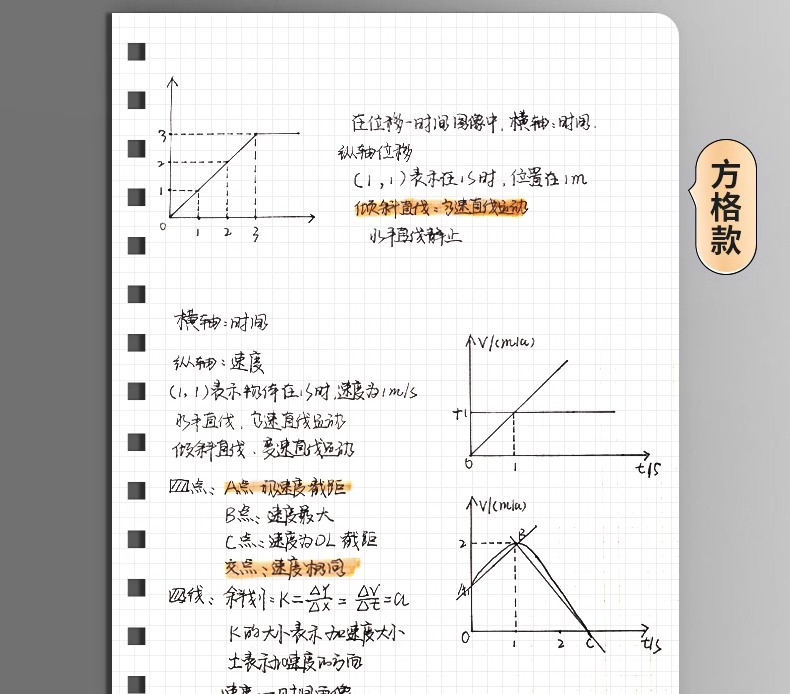 在位移-时间图像中,横轴:时间.
纵轴位移
(1,1)表示在1s时,位置在1m
倾斜直线:匀速直线运动
水平直线静止
3
2
1
0
1 2 3
方格款
横轴:时间
纵轴:速度
(1,1)表示物体在1s时,速度为1m/s
水平直线、匀速直线运动
倾斜直线、变速直线运动
V/(m/s)
+1
0
1
t/s
四点:A点 初速度截距
B点:速度最大
C点:速度为0 截距
交点:速度相同
四线:斜线:K=ΔY/Δx=ΔV/Δt=a
K的大小表示加速度大小
±表示加速度的方向
速度-时间图像
V/(m/s)
2
B
A
0
1
2
C
t/s